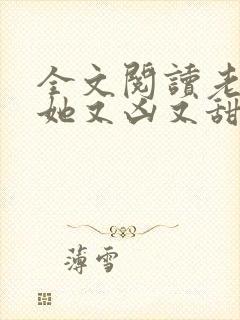 全文閱讀老
她又凶又甜
薄雪